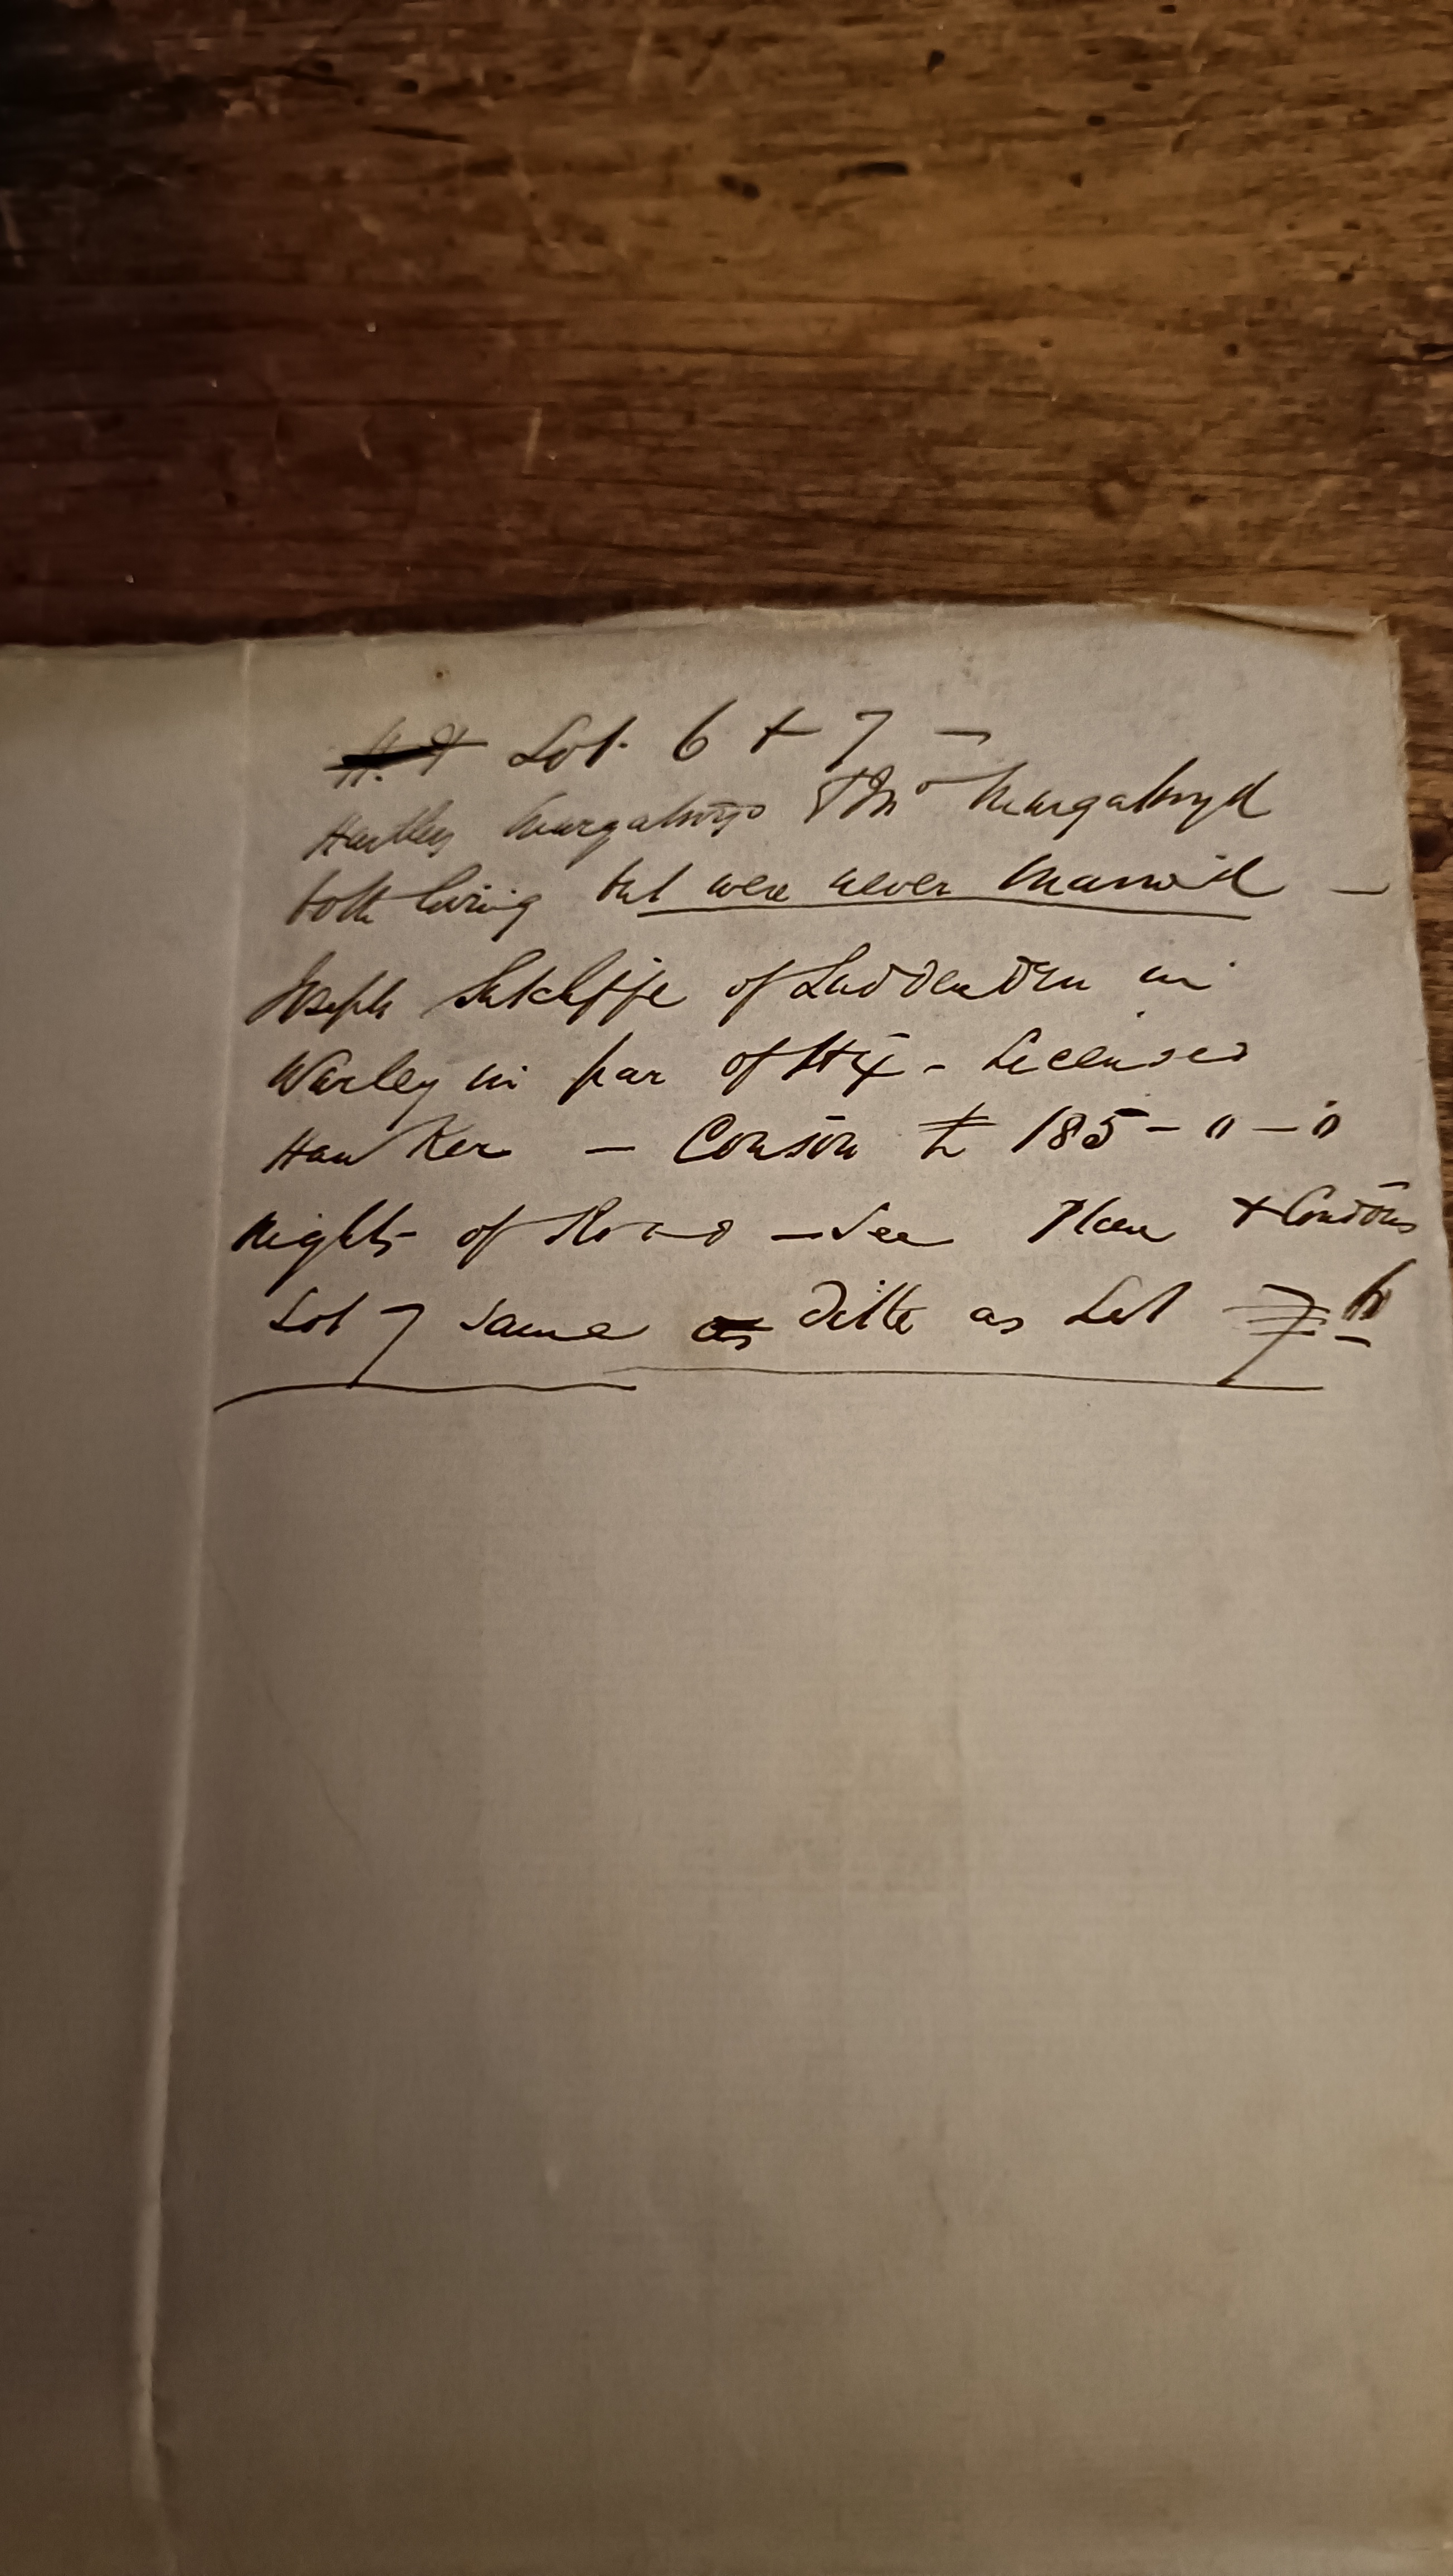 Lot 6 + 7 —
Hartley Murgatroyd & Mr Murgatroyd
both living but were never married —
Joseph Sutcliffe of Luddenden in
Warley in par of Hfx - Licensed
Hawker — Conson £ 185 - 0 - 0
Rights of Road — See Plan + Condons
Lot 7 same as Ditto as Lot 7 6